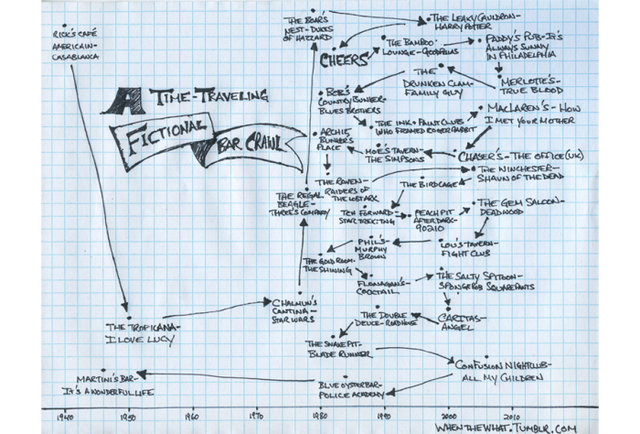 RICK'S CAFÉ
AMERICAIN-
CASABLANCA
A TIME-TRAVELING
FICTIONAL
BAR CRAWL
THE BOAR'S
NEST-DUKES
OF HAZZARD
THE LEAKY CAULDRON-
HARRY POTTER
CHEERS
THE BAMBOO
LOUNGE-GOODFELLAS
PADDY'S PUB-IT'S
ALWAYS SUNNY
IN PHILADELPHIA
THE
DRUNKEN CLAM-
FAMILY GUY
MERLOTTE'S-
TRUE BLOOD
BOB'S
COUNTRY BUNKER-
BLUES BROTHERS
THE INK & PAINT CLUB-
WHO FRAMED ROGER RABBIT
MACLAREN'S-HOW
I MET YOUR MOTHER
ARCHIE
BUNKER'S
PLACE
MOE'S TAVERN-
THE SIMPSONS
CHASER'S-THE OFFICE (UK)
THE WINCHESTER-
SHAUN OF THE DEAD
THE RAVEN-
RAIDERS OF
THE LOST ARK
THE BIRDCAGE
THE REGAL
BEAGLE-
THREE'S COMPANY
TEN FORWARD-
STAR TREK TNG
PEACH PIT
AFTER DARK-
90210
THE GEM SALOON-
DEADWOOD
PHIL'S-
MURPHY
BROWN
LOU'S TAVERN-
FIGHT CLUB
THE GOLD ROOM-
THE SHINING
FLANAGAN'S-
COCKTAIL
THE SALTY SPITOON-
SPONGEBOB SQUAREPANTS
CHALMUN'S
CANTINA-
STAR WARS
THE DOUBLE
DEUCE-ROADHOUSE
CARITAS-
ANGEL
THE TROPICANA-
I LOVE LUCY
THE SNAKE PIT-
BLADE RUNNER
CONFUSION NIGHTCLUB-
ALL MY CHILDREN
MARTINI'S BAR-
IT'S A WONDERFUL LIFE
BLUE OYSTER BAR-
POLICE ACADEMY
1940 1950 1960 1970 1980 1990 2000 2010
WHENTHEWHAT.TUMBLR.COM